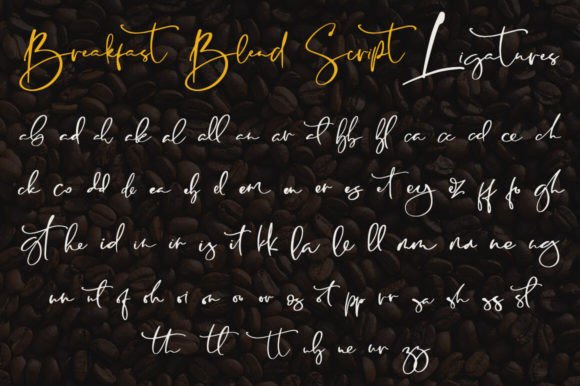 Breakfast Blend Script Ligatures
ab ad ah ak al all an ar at bb bl ca cc cd ce ch
ck co dd de ea ef el em en er es et ey ff fo gh
gt he id in ir is it kk la le ll mm nn ne ng
nn nt of oh oi on oo or os ot pp rr sa sh ss st
th tl tt ub ue ur zz